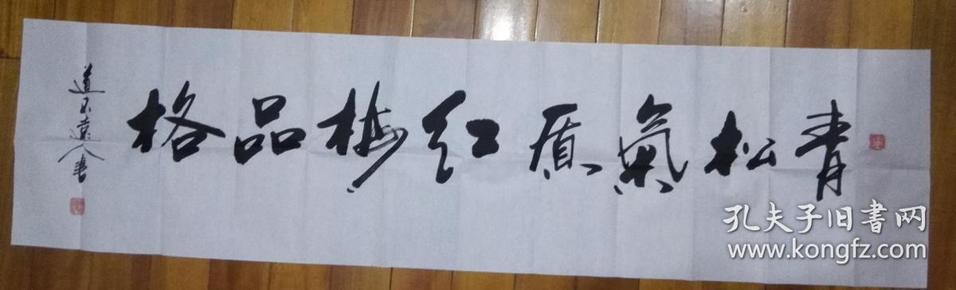 青松氣质红梅品格
道不遠人書
孔夫子旧書网
www.kongfz.com